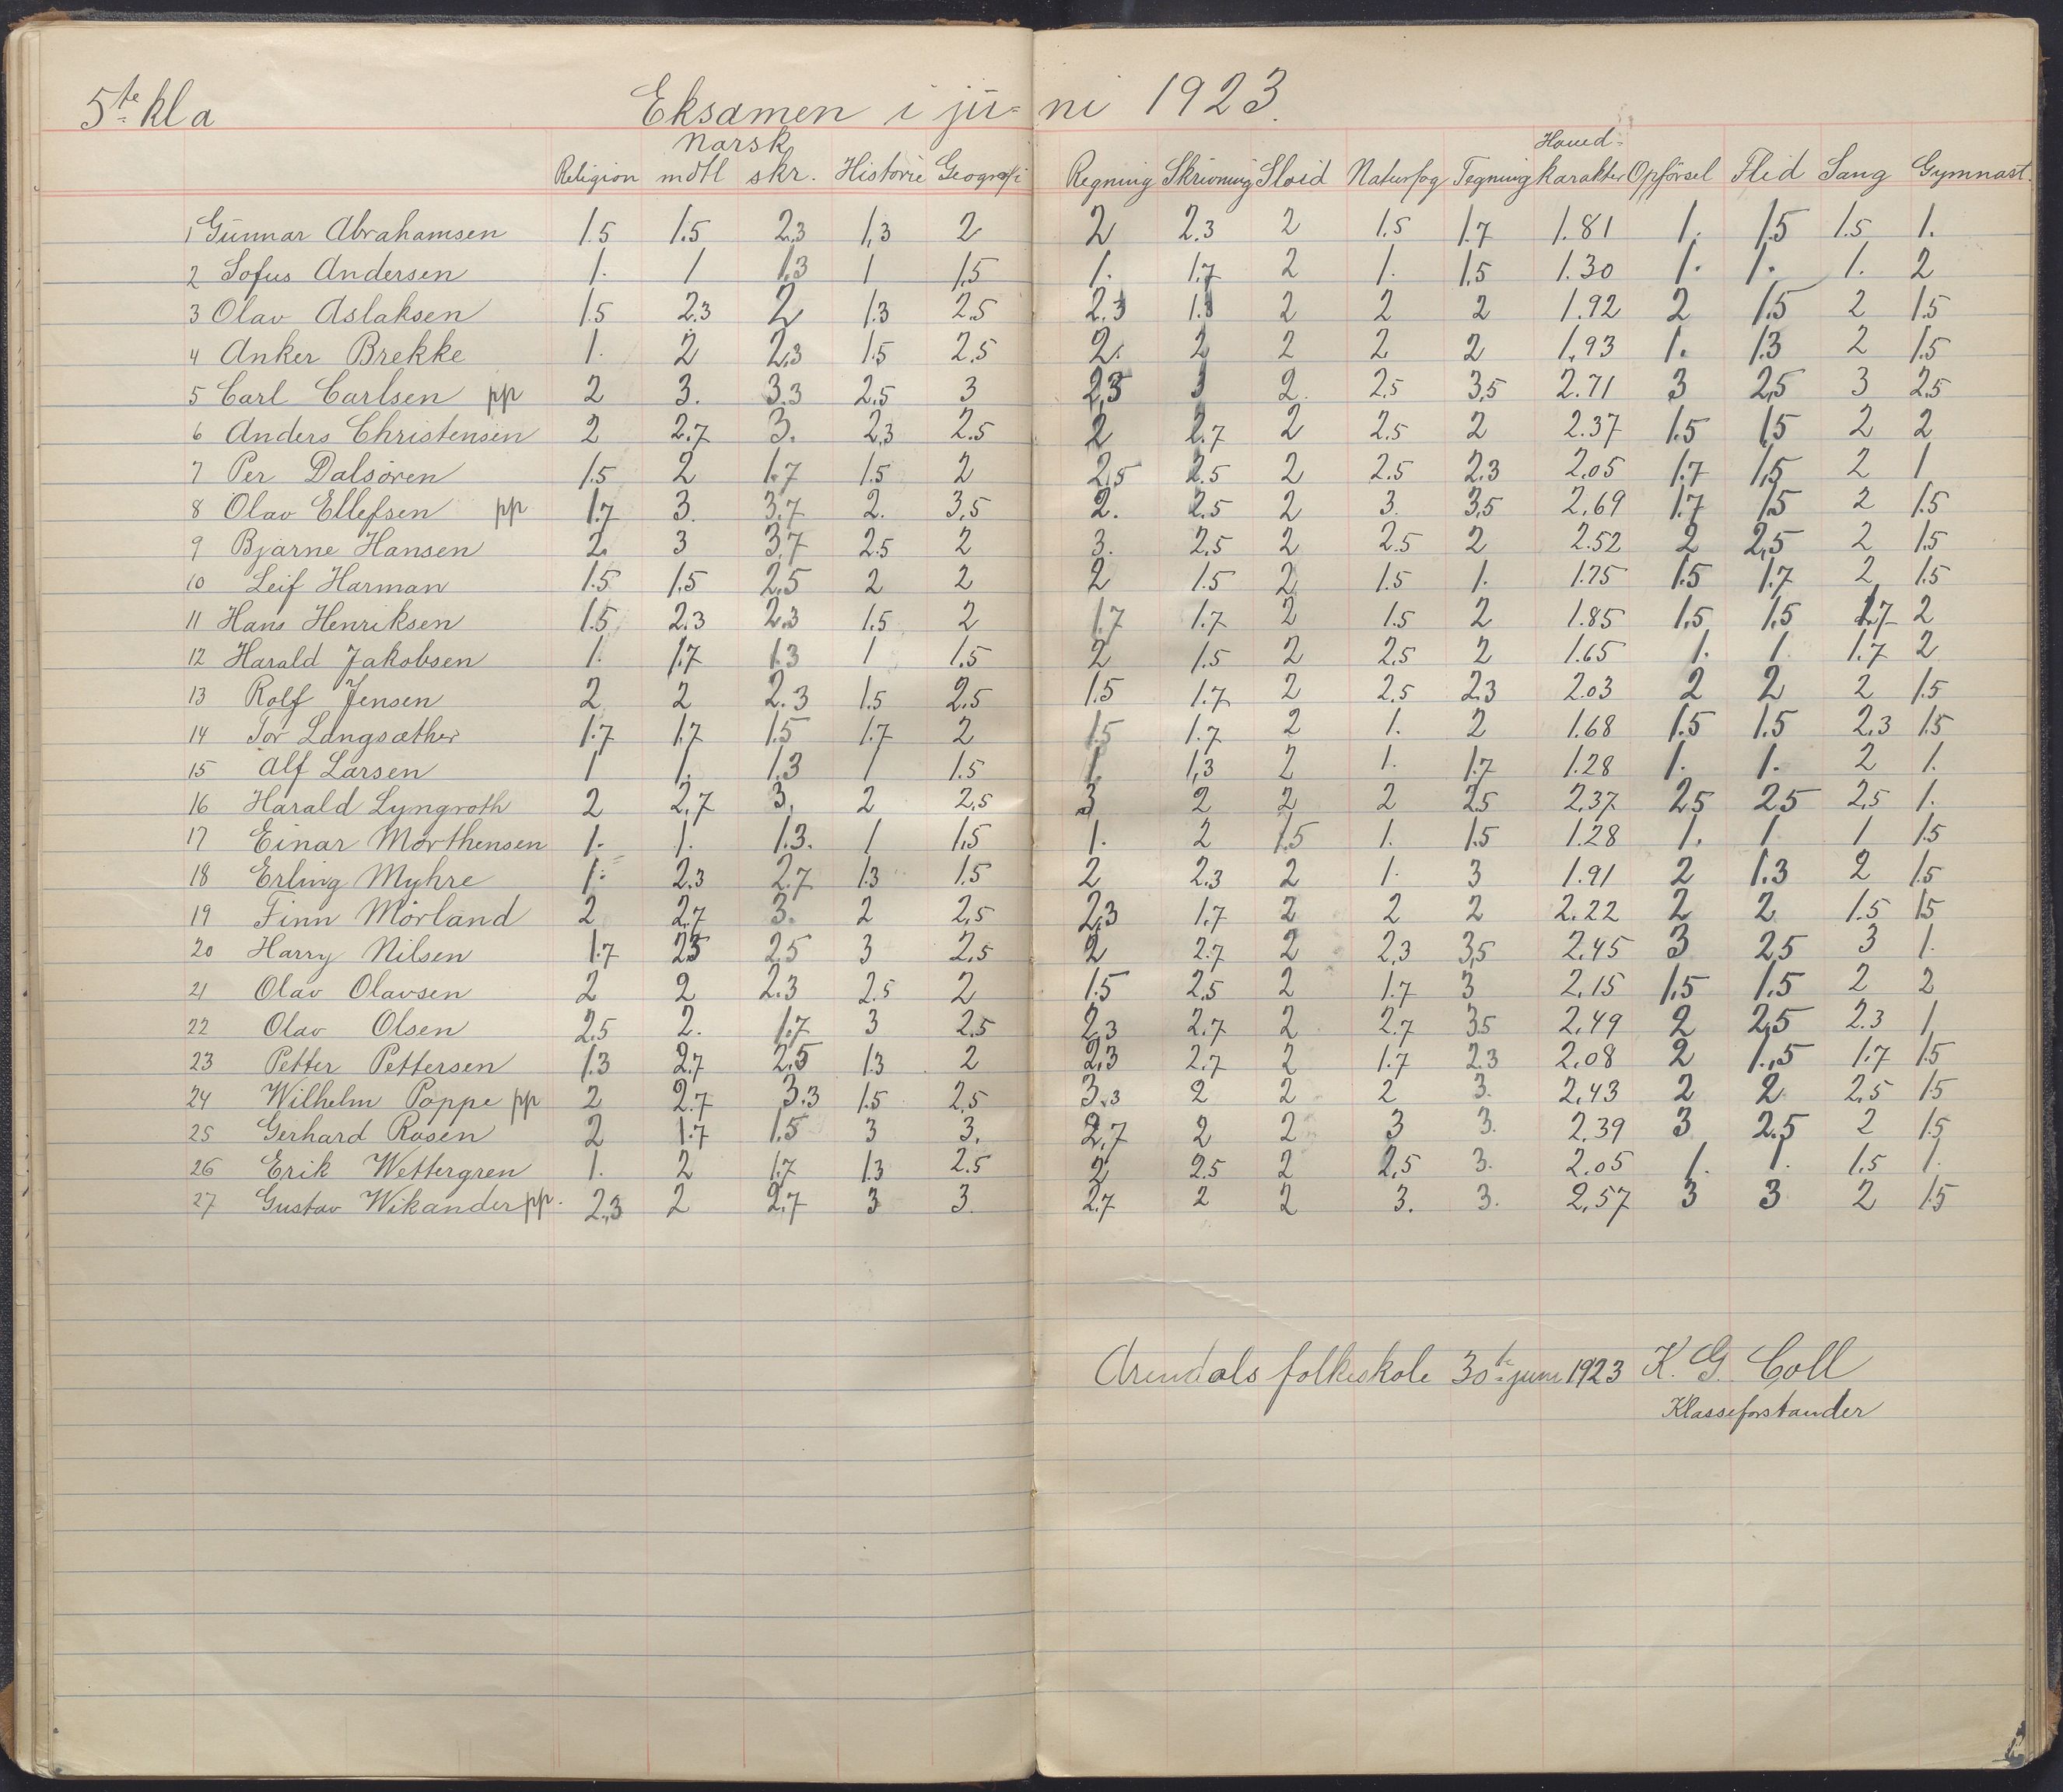 5te kl a Eksamen i juni 1923.
Norsk Hoved-
Religion mdtl skr. Historie Geografi Regning Skrivning Sløid Naturfag Tegning karakter Opførsel Flid Sang Gymnast.
1 Gunnar Abrahamsen 1.5 1.5 2.3 1,3 2 2 2.3 2 1.5 1.7 1.81 1. 1.5 1.5 1.
2 Sofus Andersen 1. 1 1.3 1 1,5 1. 1.7 2 1. 1,5 1.30 1. 1. 1. 2
3 Olav Aslaksen 1.5 2.3 2 1.3 2.5 2.3 1.3 2 2 2 1.92 2 1.5 2 1.5
4 Anker Brekke 1. 2 2,3 1.5 2.5 2. 2 2 2 2 1,93 1. 1.3 2 1.5
5 Carl Carlsen pp 2 3. 3.3 2.5 3 2,5 3 2. 2.5 3,5 2.71 3 2,5 3 2.5
6 Anders Christensen 2 2.7 3. 2,3 2.5 2 2.7 2 2.5 2 2.37 1.5 1.5 2 2
7 Per Dalsøren 1.5 2 1.7 1.5 2 2,5 2.5 2 2.5 2.3 2.05 1.7 1,5 2 1
8 Olav Ellefsen pp 1.7 3. 3.7 2. 3,5 2. 2.5 2 3. 3,5 2,69 1.7 1.5 2 1.5
9 Bjarne Hansen 2. 3 3,7 2.5 2 3. 2,5 2 2.5 2 2.52 2 2,5 2 1.5
10 Leif Harman 1.5 1.5 2,5 2 2 2 1.5 2 1.5 1. 1.75 1.5 1.7 2 1.5
11 Hans Henriksen 1.5 2.3 2.3 1.5 2 1.7 1.7 2 1.5 2 1.85 1,5 1,5 1.7 2
12 Harald Jakobsen 1. 1.7 1.3 1 1.5 2 1.5 2 2.5 2 1.65 1. 1. 1.7 2
13 Rolf Jensen 2 2 2.3 1.5 2,5 1.5 1.7 2 2.5 2.3 2.03 2 2 2 1.5
14 Tor Langsæther 1.7 1.7 1.5 1.7 2 1.5 1.7 2 1. 2 1.68 1.5 1.5 2,3 1.5
15 Alf Larsen 1 1. 1.3 1 1.5 1. 1,3 2 1. 1.7 1.28 1. 1. 2 1.
16 Harald Lyngroth 2 2,7 3. 2 2,5 3 2 2 2 2.5 2,37 2.5 2.5 2,5 1.
17 Einar Morthensen 1. 1. 1.3. 1 1,5 1. 2 1.5 1. 1.5 1.28 1. 1 1 1.5
18 Erling Myhre 1. 2.3 2.7 1.3 1.5 2 2.3 2 1. 3 1.91 2 1.3 2 1.5
19 Finn Mørland 2 2.7 3. 2 2,5 2,3 1.7 2 2 2 2.22 2 2 1.5 1.5
20 Harry Nilsen 1.7 2.5 2.5 3 2,5 2 2.7 2 2,3 3,5 2,45 3 2.5 3 1.
21 Olav Olavsen 2 2 2.3 2.5 2 1.5 2,5 2 1.7 3 2,15 1,5 1.5 2 2
22 Olav Olsen 2,5 2. 1.7 3 2.5 2,3 2.7 2 2.7 3.5 2,49 2 2,5 2.3 1
23 Petter Pettersen 1.3 2.7 2.5 1.3 2 2,3 2.7 2 1.7 2.3 2,08 2 1.,5 1.7 1.5
24 Wilhelm Poppe pp 2 2.7 3.3 1.5 2,5 3.3 2 2 2 3. 2,43 2 2 2,5 1.5
25 Gerhard Rosen 2 1.7 1.5 3 3. 2.7 2 2 3 3. 2.39 3 2.5 2 1.5
26 Erik Wettergren 1. 2 1.7 1.3 2.5 2 2.5 2 2,5 3. 2.05 1. 1. 1,5 1.
27 Gustav Wikander pp. 2,3 2 2.7 3 3. 2.7 2 2 3. 3. 2,57 3 3 2 1.5
Arendals folkeskole 30te juni 1923 K. G. Coll
Klasseforstander